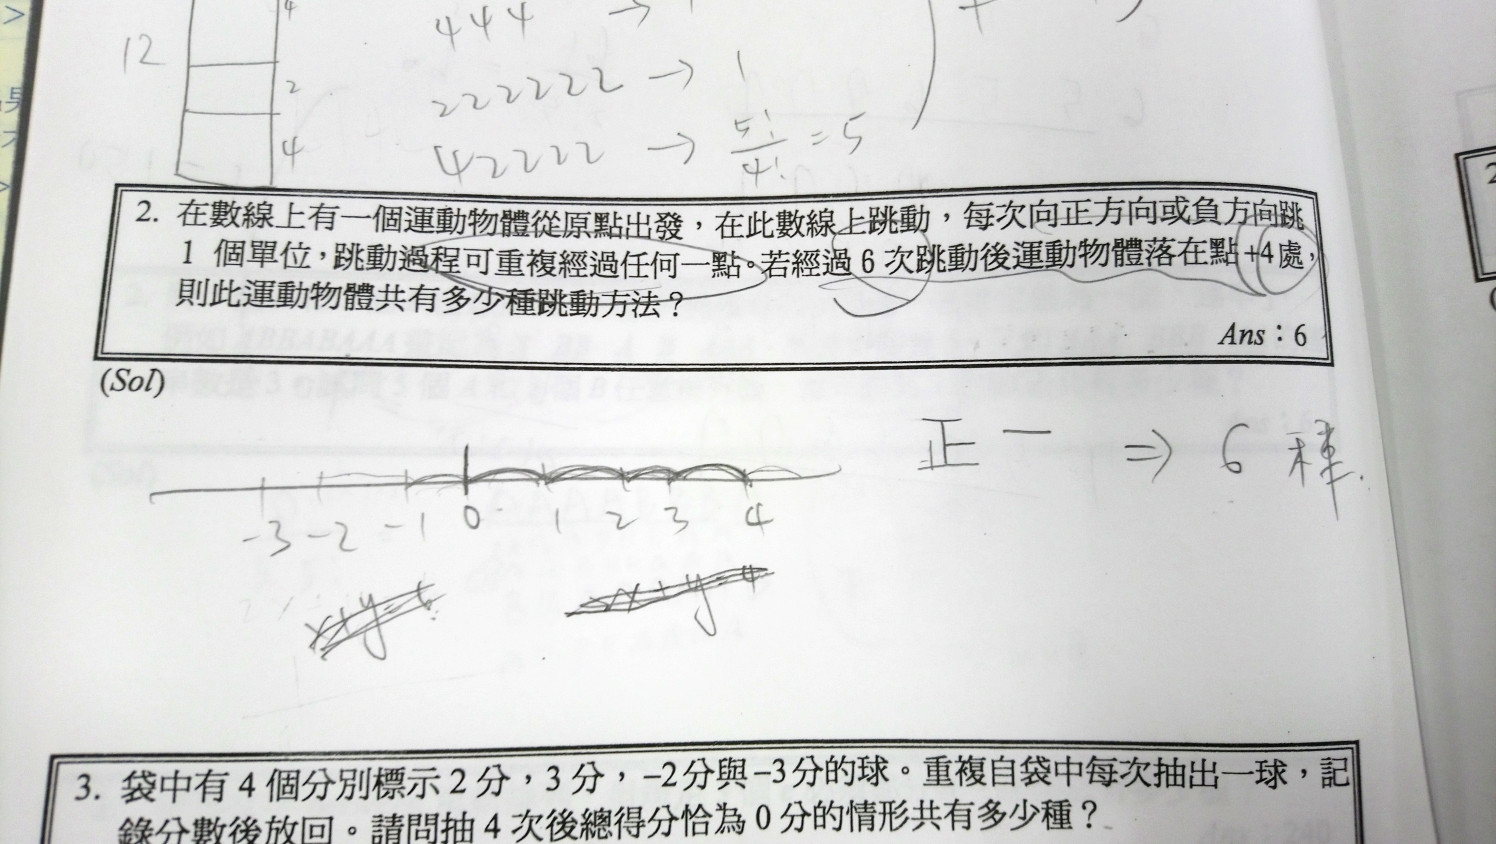 4
12
444 →
2
222222 → 1
4
42222 → 5!/4! = 5
2. 在數線上有一個運動物體從原點出發，在此數線上跳動，每次向正方向或負方向跳
1 個單位，跳動過程可重複經過任何一點。若經過 6 次跳動後運動物體落在點+4處，
則此運動物體共有多少種跳動方法？
Ans：6
(Sol)
正一 ⇒ 6 種.
-3 -2 -1 0 1 2 3 4
3. 袋中有 4 個分別標示 2 分，3 分，-2分與-3分的球。重複自袋中每次抽出一球，記
錄分數後放回。請問抽 4 次後總得分恰為 0 分的情形共有多少種？